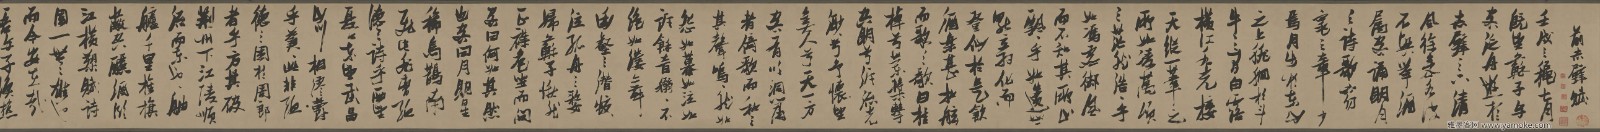 前赤壁賦
壬戌之穐七月
既望蘇子與
客泛舟遊於
赤壁之下清
風徐來水波
不興舉酒
屬客誦明月
之詩歌窈
窕之章少
焉月出於東山
之上徘徊於斗
牛之間白露
橫江水光接
天縱一葦之
所如凌萬頃
之茫然浩浩乎
如馮虛御風
而不知其所止
飄飄乎如遺世
獨立羽化而
登仙於是飲
酒樂甚扣舷
而歌之歌曰桂
棹兮蘭槳擊
空明兮泝流光
渺渺兮予懷望
美人兮天一方
客有吹洞簫
者倚歌而和之
其聲嗚嗚然如
怨如慕如泣如
訴餘音嫋嫋不
絕如縷舞
幽壑之潛蛟
泣孤舟之嫠
婦蘇子愀然
正襟危坐而問
客曰何為其然
也客曰月明星
稀烏鵲南
飛此非曹孟
德之詩乎西望
夏口東望武昌
山川相繆鬱
乎蒼蒼此非孟
德之困於周郎
者乎方其破
荊州下江陵順
流而東也舳
艫千里旌旗
蔽空釃酒臨
江橫槊賦詩
固一世之雄也
而今安在哉
吾與子漁樵
www.yamoke.com